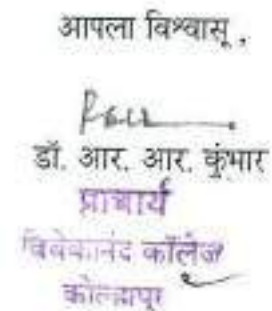 आपला विश्वासू,
डॉ. आर. आर. कुंभार
प्राचार्य
विवेकानंद कॉलेज
कोल्हापूर